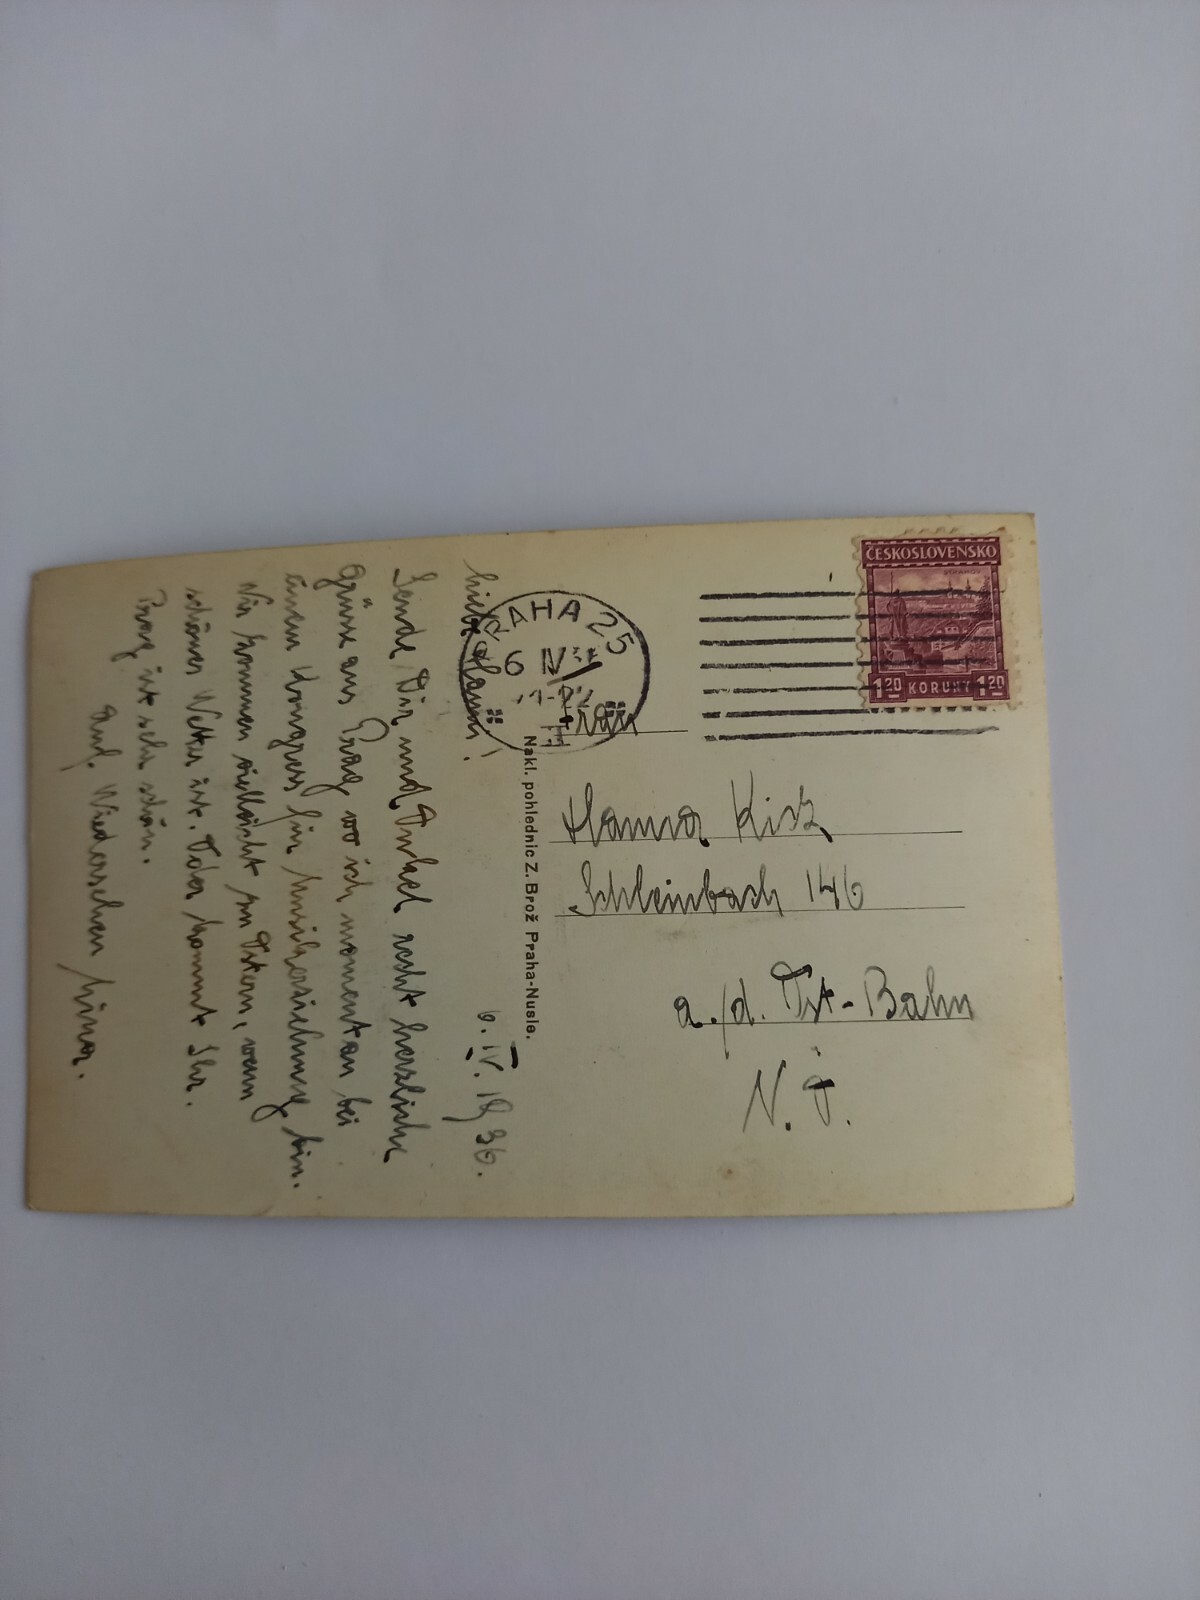 6. IV. 1936.
Liebe Hanna!
Sende Dir und Onkel recht herzliche
Grüsse aus Prag wo ich momentan bei
einem Kongress für Musikerziehung bin.
Wir kommen vielleicht zu Ostern, wenn
schönes Wetter ist. Oder kommt Ihr.
Prag ist sehr schön.
Auf Wiedersehen
Nakl. pohlednic Z. Brož Praha-Nusle.
PRAHA 25
6 IV 36
ČESKOSLOVENSKO
STRAHOV
1.20 KORUNY 1.20
Frau
Hanna
Schleinbach 146
a./d. Ost-Bahn
N. Ö.